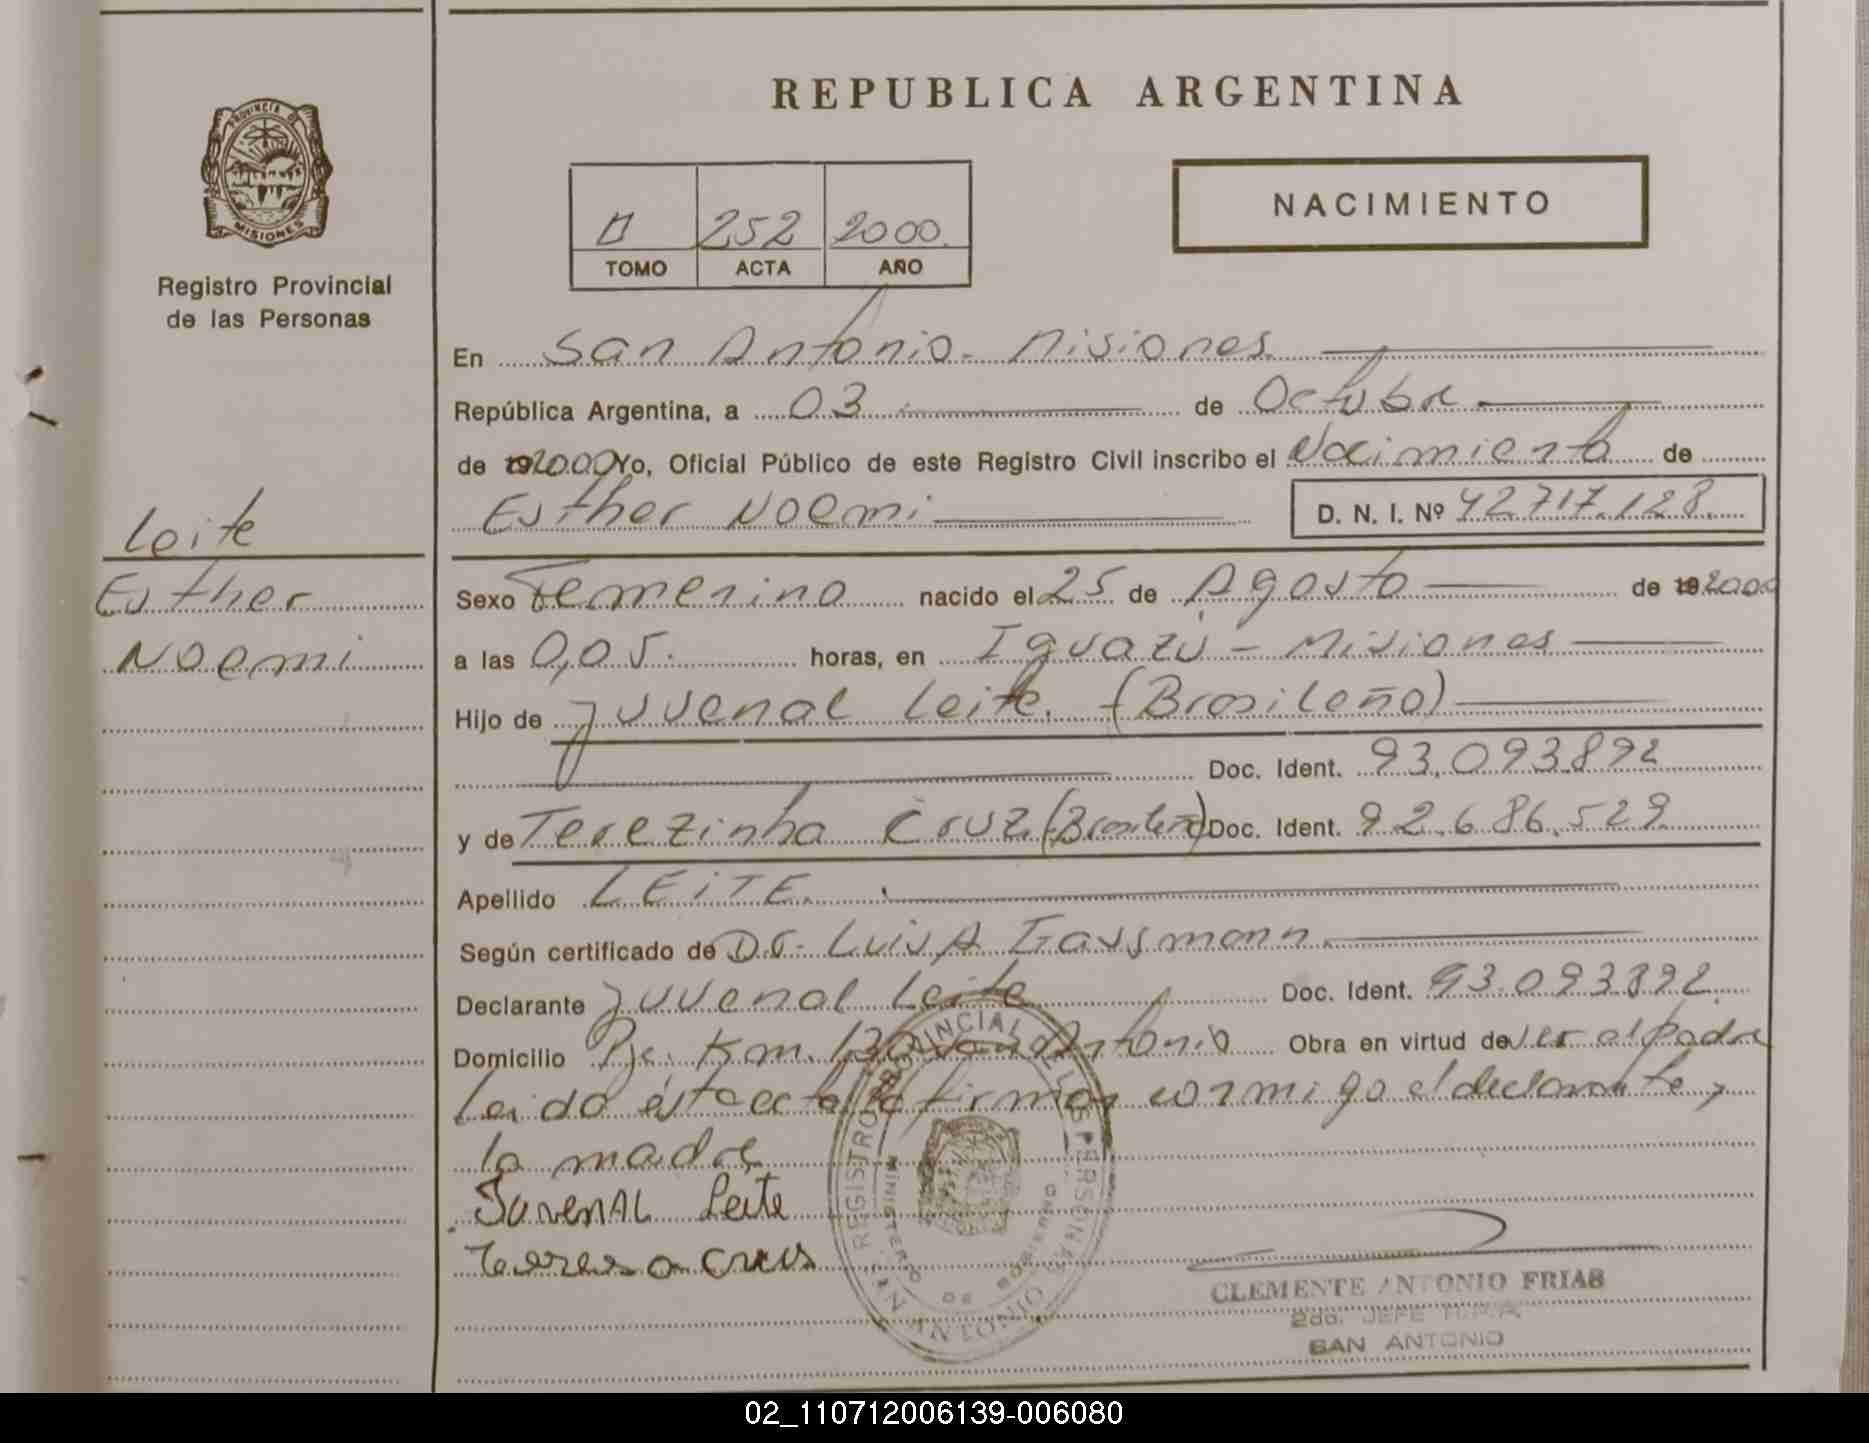 REPUBLICA ARGENTINA
PROVINCIA DE
MISIONES
Registro Provincial
de las Personas
252 2000
TOMO ACTA AÑO
NACIMIENTO
En San Antonio - Misiones
República Argentina, a 03 de Octubre
de 192000 Yo, Oficial Público de este Registro Civil inscribo el Nacimiento de
Esther Noemi D. N. I. Nº 42717.128.
Leite
Esther
Noemi
Sexo Femenino nacido el 25 de Agosto de 192000
a las 0,05. horas, en Iguazú - Misiones
Hijo de Juvenal Leite. (Brasileño)
Doc. Ident. 93.093.892
y de Terezinha Cruz (Brasileña) Doc. Ident. 92.686.529
Apellido LEiTE.
Según certificado de Dr. Luis A Gaussmann
Declarante Juvenal Leite Doc. Ident. 93.093892.
Domicilio Pje. Km. San Antonio Obra en virtud de ser el padre
Leido ésta acta la firman conmigo el declarante y
la madre
JuvenAL Leite
Teresa Crus
REGISTRO PROVINCIAL DE LAS PERSONAS
MINISTERIO DE GOBIERNO
SAN ANTONIO
CLEMENTE ANTONIO FRIAS
2do. JEFE R.P.P.
SAN ANTONIO
02_110712006139-006080